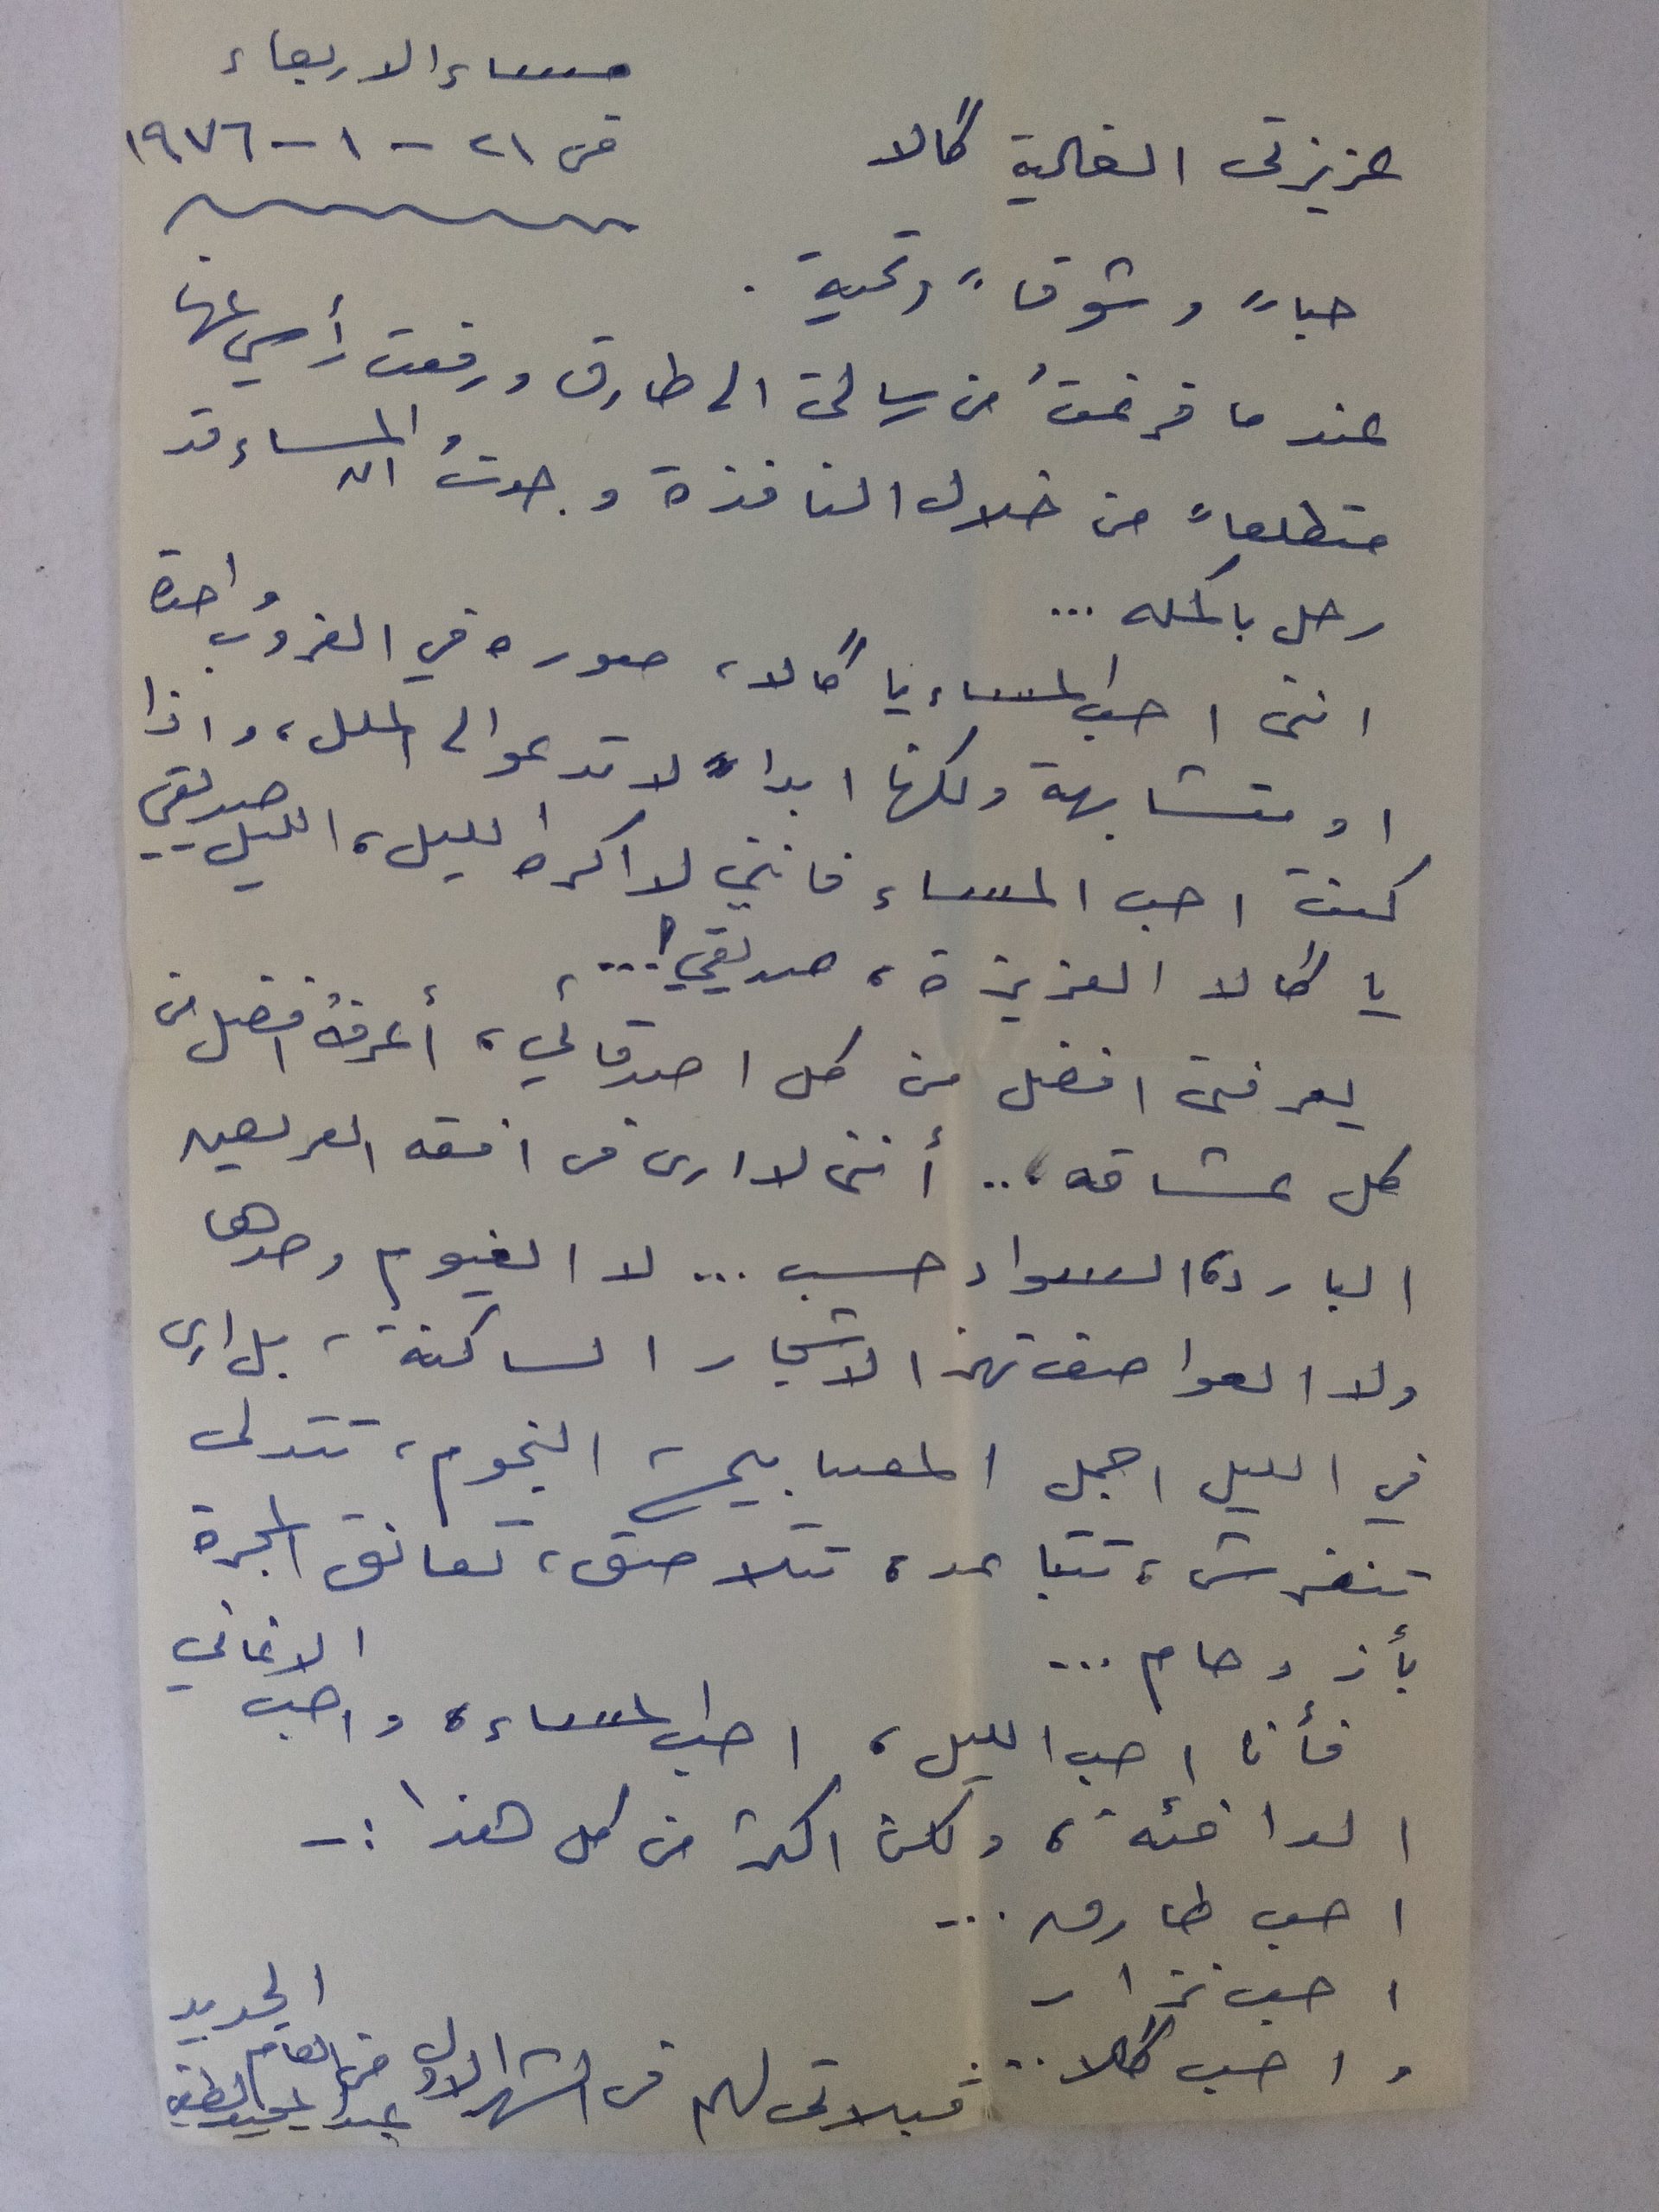 مساء الاربعاء
في ٢١ - ١ - ١٩٧٦
عزيزتي الغالية گالا
حباً وشوقاً وتحية .
عندما فرغتُ من رسالتي الى طارق ورفعت رأسي عنها
متطلعاً من خلال النافذة وجدتُ ان المساء قد
رحل باكمله ...
انني احب المساء يا گالا، صوره في الغروب واحدة
او متشابهة ولكنها ابداً لا تدعو الى الملل، واذا
كنت احب المساء فانني لا اكره الليل، الليل صديقي
يا گالا العزيزة، صديقي!...
يعرفني افضل من كل اصدقائي، أعرفهُ افضل من
كل عشاقه... أنني لا ارى في افقه العريض
البارد، السواد حسب ... لا الغيوم وحدها
ولا العواصف تهز الاشجار الساكنة، بل ارى
في الليل اجمل المصابيح، النجوم، تتدلى
تنفرش، تتباعد، تتلاصق، تعانق المجرة
بأزدحام ...
فأنا احب الليل، احب المساء، واحب الاغاني
الدافئة، ولكن اكثر من كل هذا :-
احب طارق ...
احب نزار
واحب گالا ..
قبلاتي لهم في الشهر الاول من العام الجديد
عبد المجيد لطفي